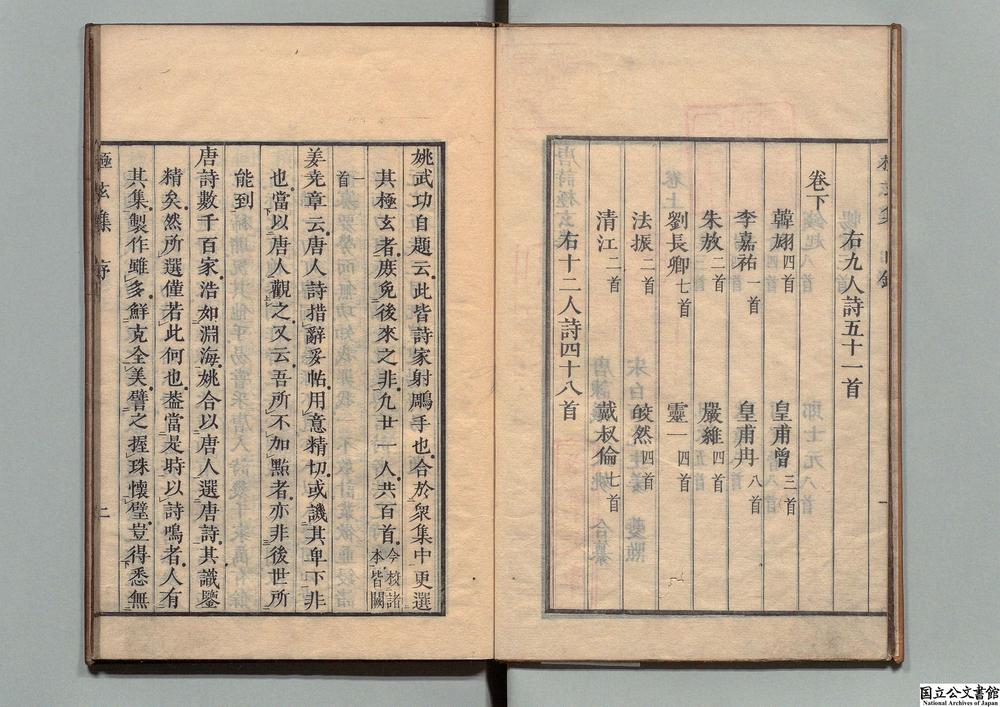 卷下
右九人詩五十一首
韓翃四首　皇甫曾三首
李嘉祐一首　皇甫冉八首
朱放二首　嚴維四首
劉長卿七首　靈一四首
法振二首　皎然四首
清江二首　戴叔倫七首
右十二人詩四十八首
姚武功自題云此皆詩家射鵰手也合於衆集中更選
其極玄者庶免後來之非凡廿一人共百首今校諸本皆闕
一首
姜堯章云唐人詩措辭妥帖用意精切或譏其卑下非
也當以唐人觀之又云吾所不加點者亦非後世所
能到
唐詩數千百家浩如淵海姚合以唐人選唐詩其識鑒
精矣然所選僅若此何也葢當是時以詩鳴者人有
其集製作雖多鮮克全美譬之握珠懷璧豈得悉無
極玄集　序　二
国立公文書館
National Archives of Japan